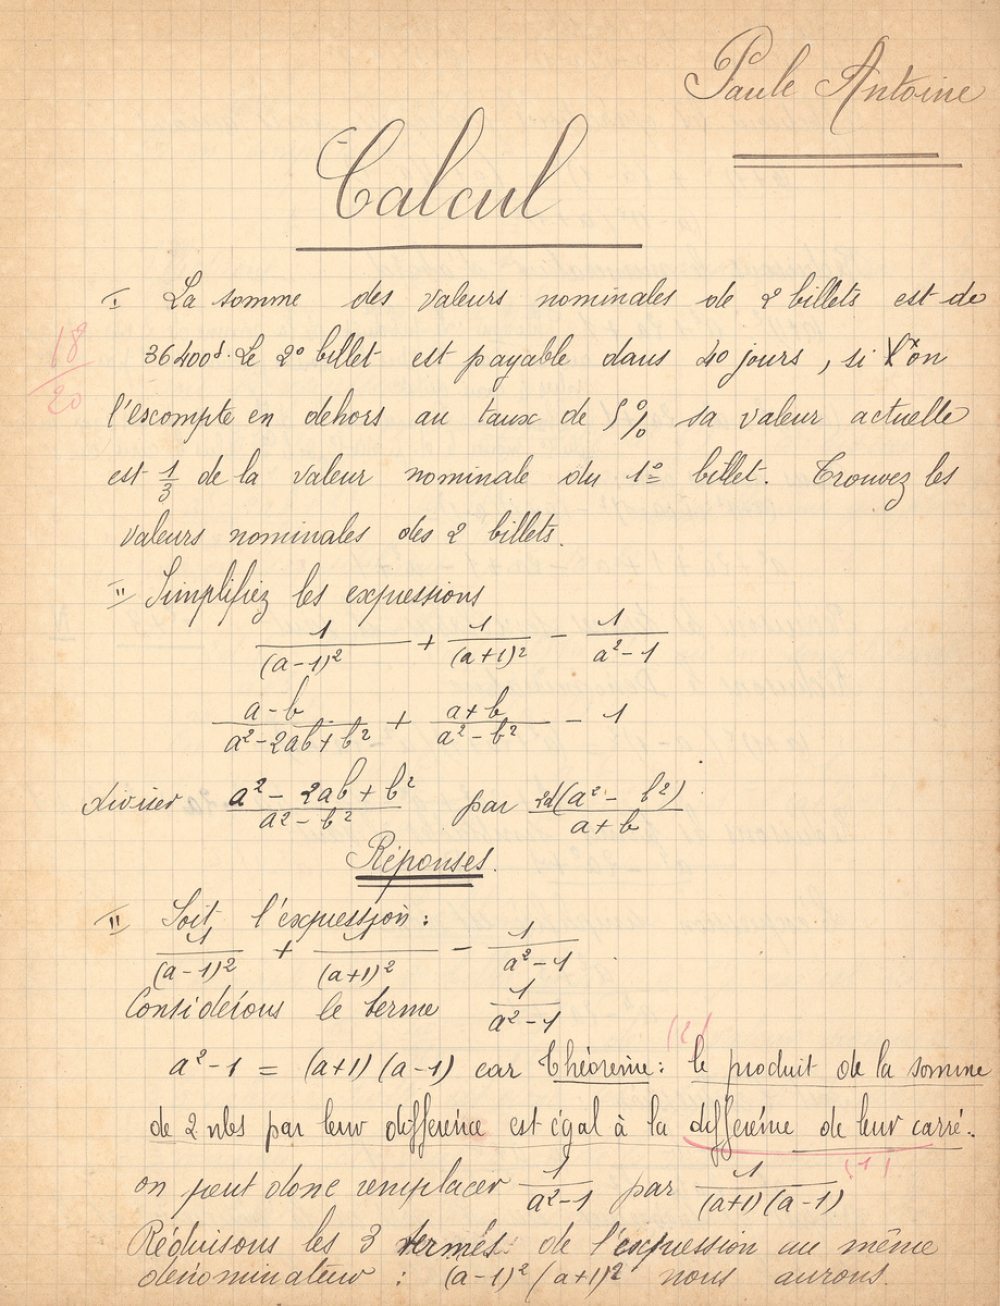 Paule Antoine
Calcul
I La somme des valeurs nominales de 2 billets est de
18/20
36400f. Le 2° billet est payable dans 40 jours, si l'on
l'escompte en dehors au taux de 5% sa valeur actuelle
est 1/3 de la valeur nominale du 1° billet. Trouvez les
valeurs nominales des 2 billets.
II Simplifiez les expressions
1/(a-1)² + 1/(a+1)² - 1/a²-1
a-b/a²-2ab+b² + a+b/a²-b² - 1
diviser a²-2ab+b²/a²-b² par (a²-b²)/a+b
Réponses.
II Soit l'expression:
1/(a-1)² + 1/(a+1)² - 1/a²-1
Considérons le terme 1/a²-1
(2)
a²-1 = (a+1)(a-1) car Théorème: le produit de la somme
de 2 nbs par leur différence est égal à la différence de leur carré.
(1)
on peut donc remplacer 1/a²-1 par 1/(a+1)(a-1)
Réduisons les 3 termes de l'expression au même
dénominateur : (a-1)²(a+1)² nous aurons.